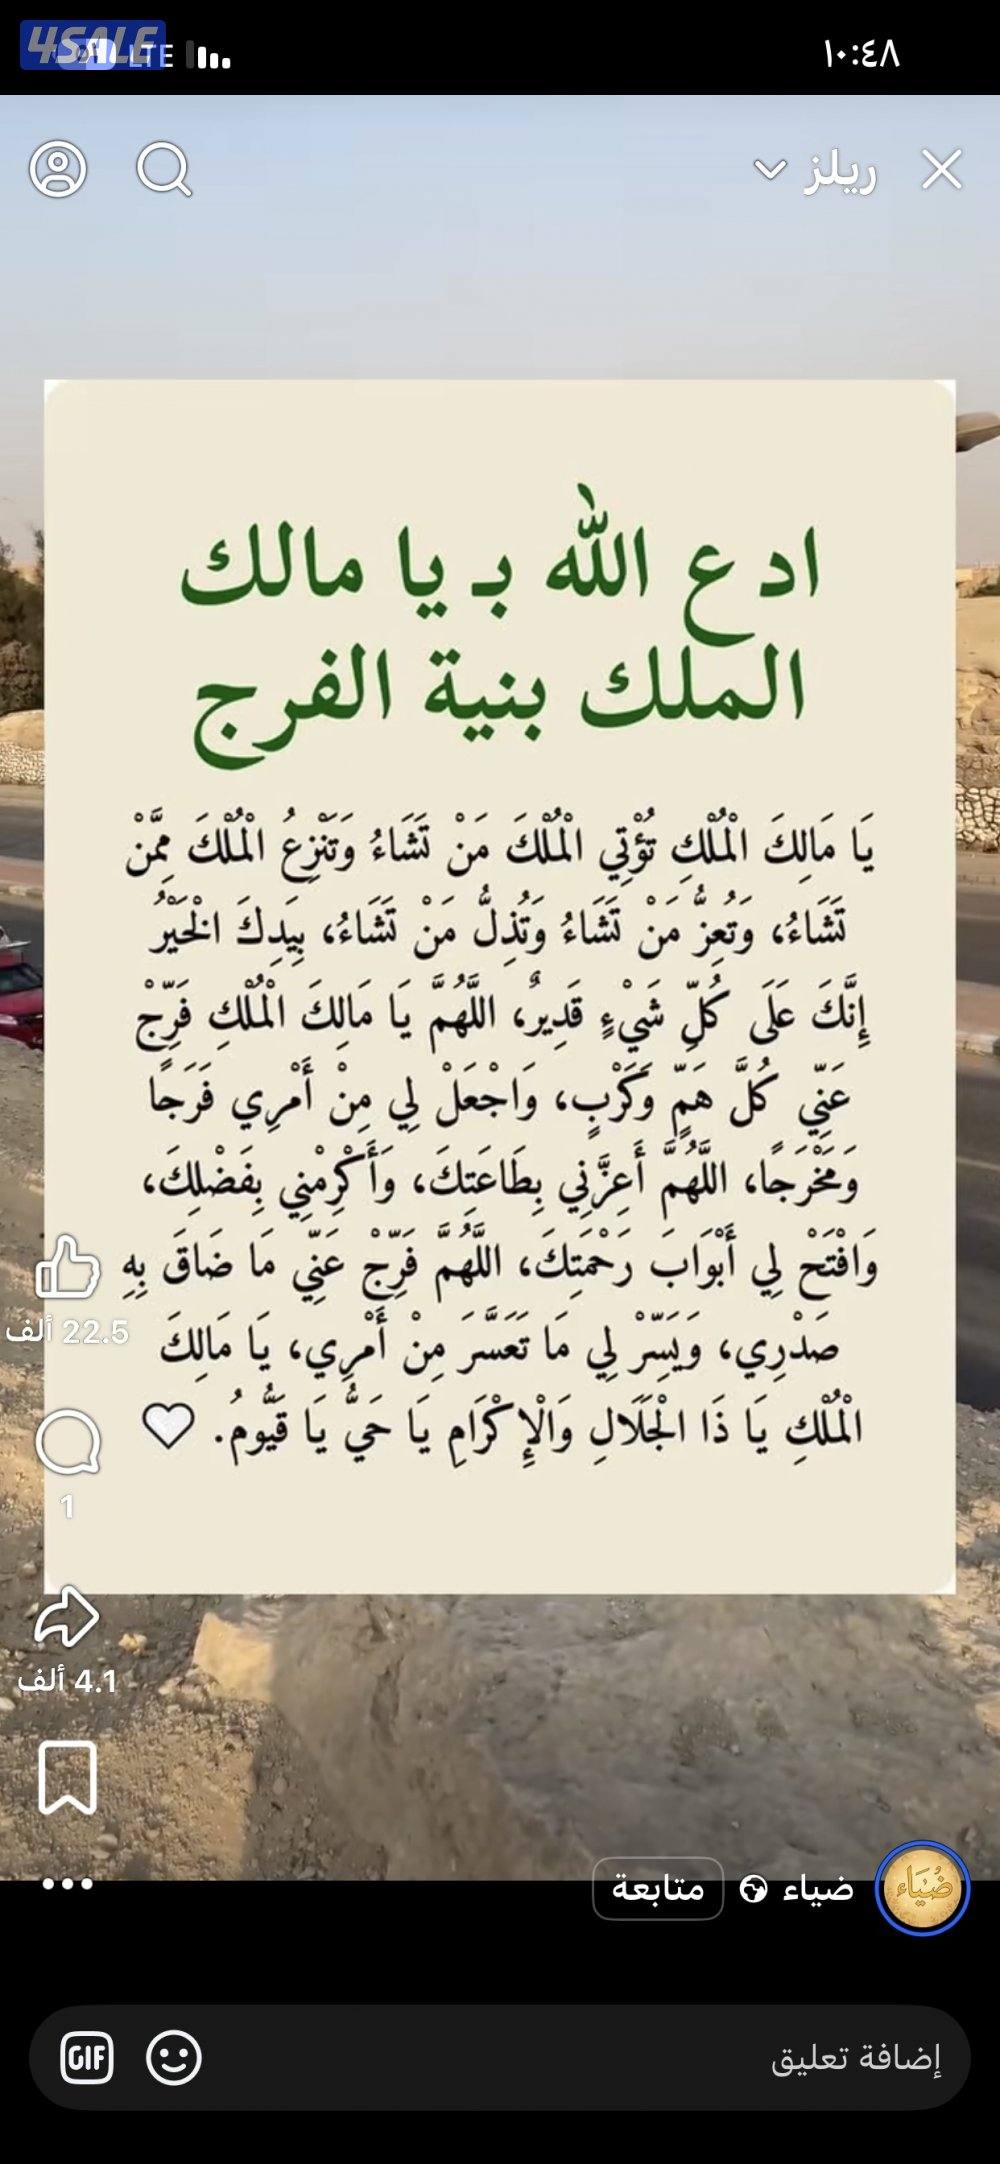 4SALE
LTE
١٠:٤٨
ريلز
ادع الله بـ يا مالك
الملك بنية الفرج
يَا مَالِكَ الْمُلْكِ تُؤْتِي الْمُلْكَ مَنْ تَشَاءُ وَتَنْزِعُ الْمُلْكَ مِمَّنْ
تَشَاءُ، وَتُعِزُّ مَنْ تَشَاءُ وَتُذِلُّ مَنْ تَشَاءُ، بِيَدِكَ الْخَيْرُ
إِنَّكَ عَلَى كُلِّ شَيْءٍ قَدِيرٌ، اللَّهُمَّ يَا مَالِكَ الْمُلْكِ فَرِّجْ
عَنِّي كُلَّ هَمٍّ وَكَرْبٍ، وَاجْعَلْ لِي مِنْ أَمْرِي فَرَجًا
وَمَخْرَجًا، اللَّهُمَّ أَعِزَّنِي بِطَاعَتِكَ، وَأَكْرِمْنِي بِفَضْلِكَ،
وَافْتَحْ لِي أَبْوَابَ رَحْمَتِكَ، اللَّهُمَّ فَرِّجْ عَنِّي مَا ضَاقَ بِهِ
صَدْرِي، وَيَسِّرْ لِي مَا تَعَسَّرَ مِنْ أَمْرِي، يَا مَالِكَ
الْمُلْكِ يَا ذَا الْجَلَالِ وَالْإِكْرَامِ يَا حَيُّ يَا قَيُّومُ.
22.5 ألف
1
4.1 ألف
ضُيَاء
ضياء
متابعة
إضافة تعليق
GIF